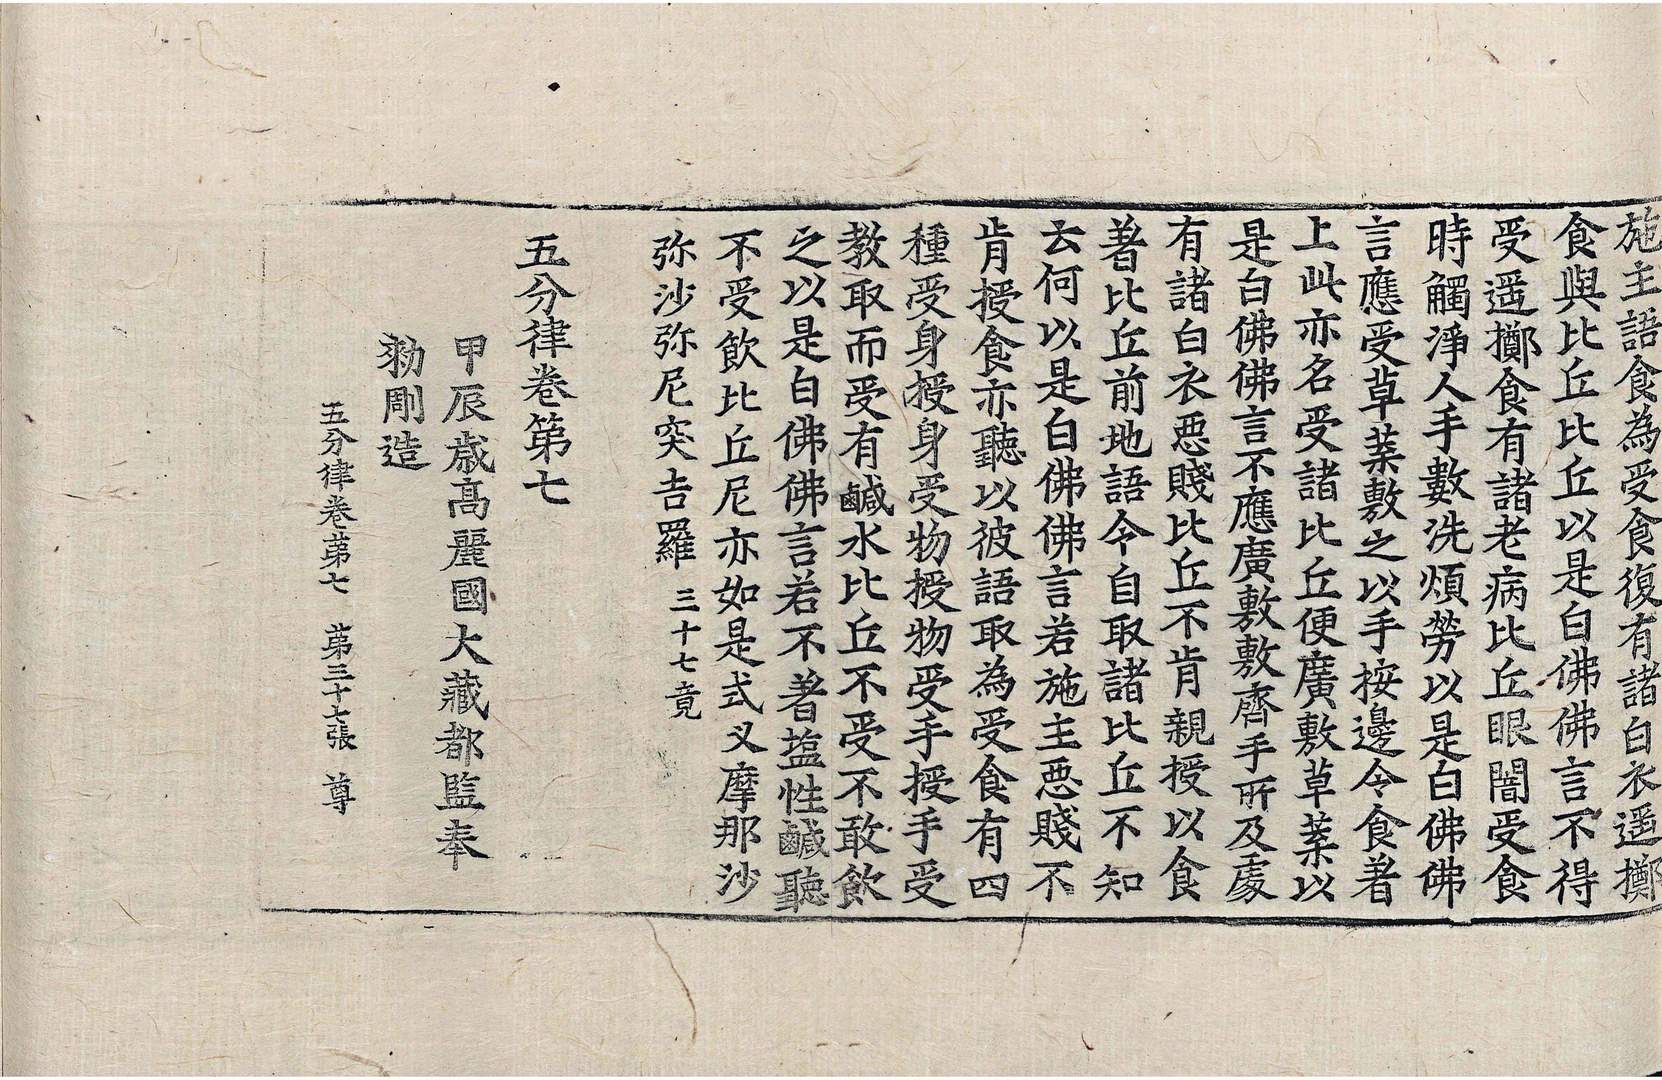 施主語食為受食復有諸白衣遥擲
食與比丘比丘以是白佛佛言不得
受遥擲食有諸老病比丘眼闇受食
時觸淨人手數洗煩勞以是白佛佛
言應受草葉敷之以手按邊令食著
上此亦名受諸比丘便廣敷草葉以
是白佛佛言不應廣敷敷齊手所及處
有諸白衣惡賤比丘不肯親授以食
著比丘前地語令自取諸比丘不知
云何以是白佛佛言若施主惡賤不
肯授食亦聽以彼語取為受食有四
種受身授身受物授物受手授手受
教取而受有鹹水比丘不受不敢飲
之以是白佛佛言若不著塩性鹹聽
不受飲比丘尼亦如是式叉摩那沙
弥沙弥尼突吉羅 三十七竟
五分律卷第七
甲辰歳高麗國大藏都監奉
勑彫造
五分律卷苐七 苐三十七張 尊